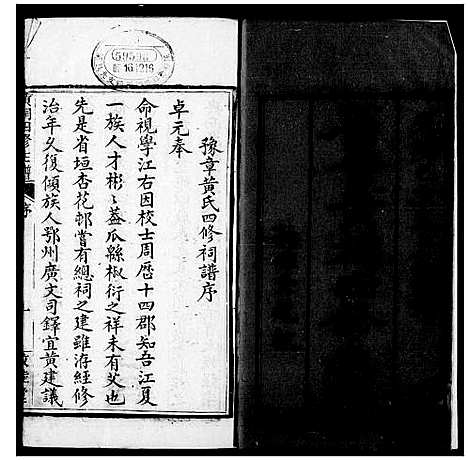 豫章黃氏四修祠譜序
卓元奉
命視學江右因校士周歷十四郡知吾江夏
一族人才彬彬葢瓜緜椒衍之祥未有艾也
先是省垣杏花邨嘗有總祠之建雖洊經修
治年久復傾族人鄂州廣文司鐸宜黃建議
四修主譜
序